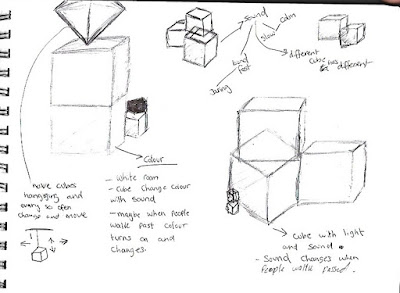 Sound
calm
slow
loud
fast
different
cube has
different
Colour
- White room
- Cube change colour
with sound
- maybe when people
walk past colour
turns on and
changes.
move cubes
hanging and
every so often
change and move
Cube with light
and sound.
- Sound changes when
People walk passed.